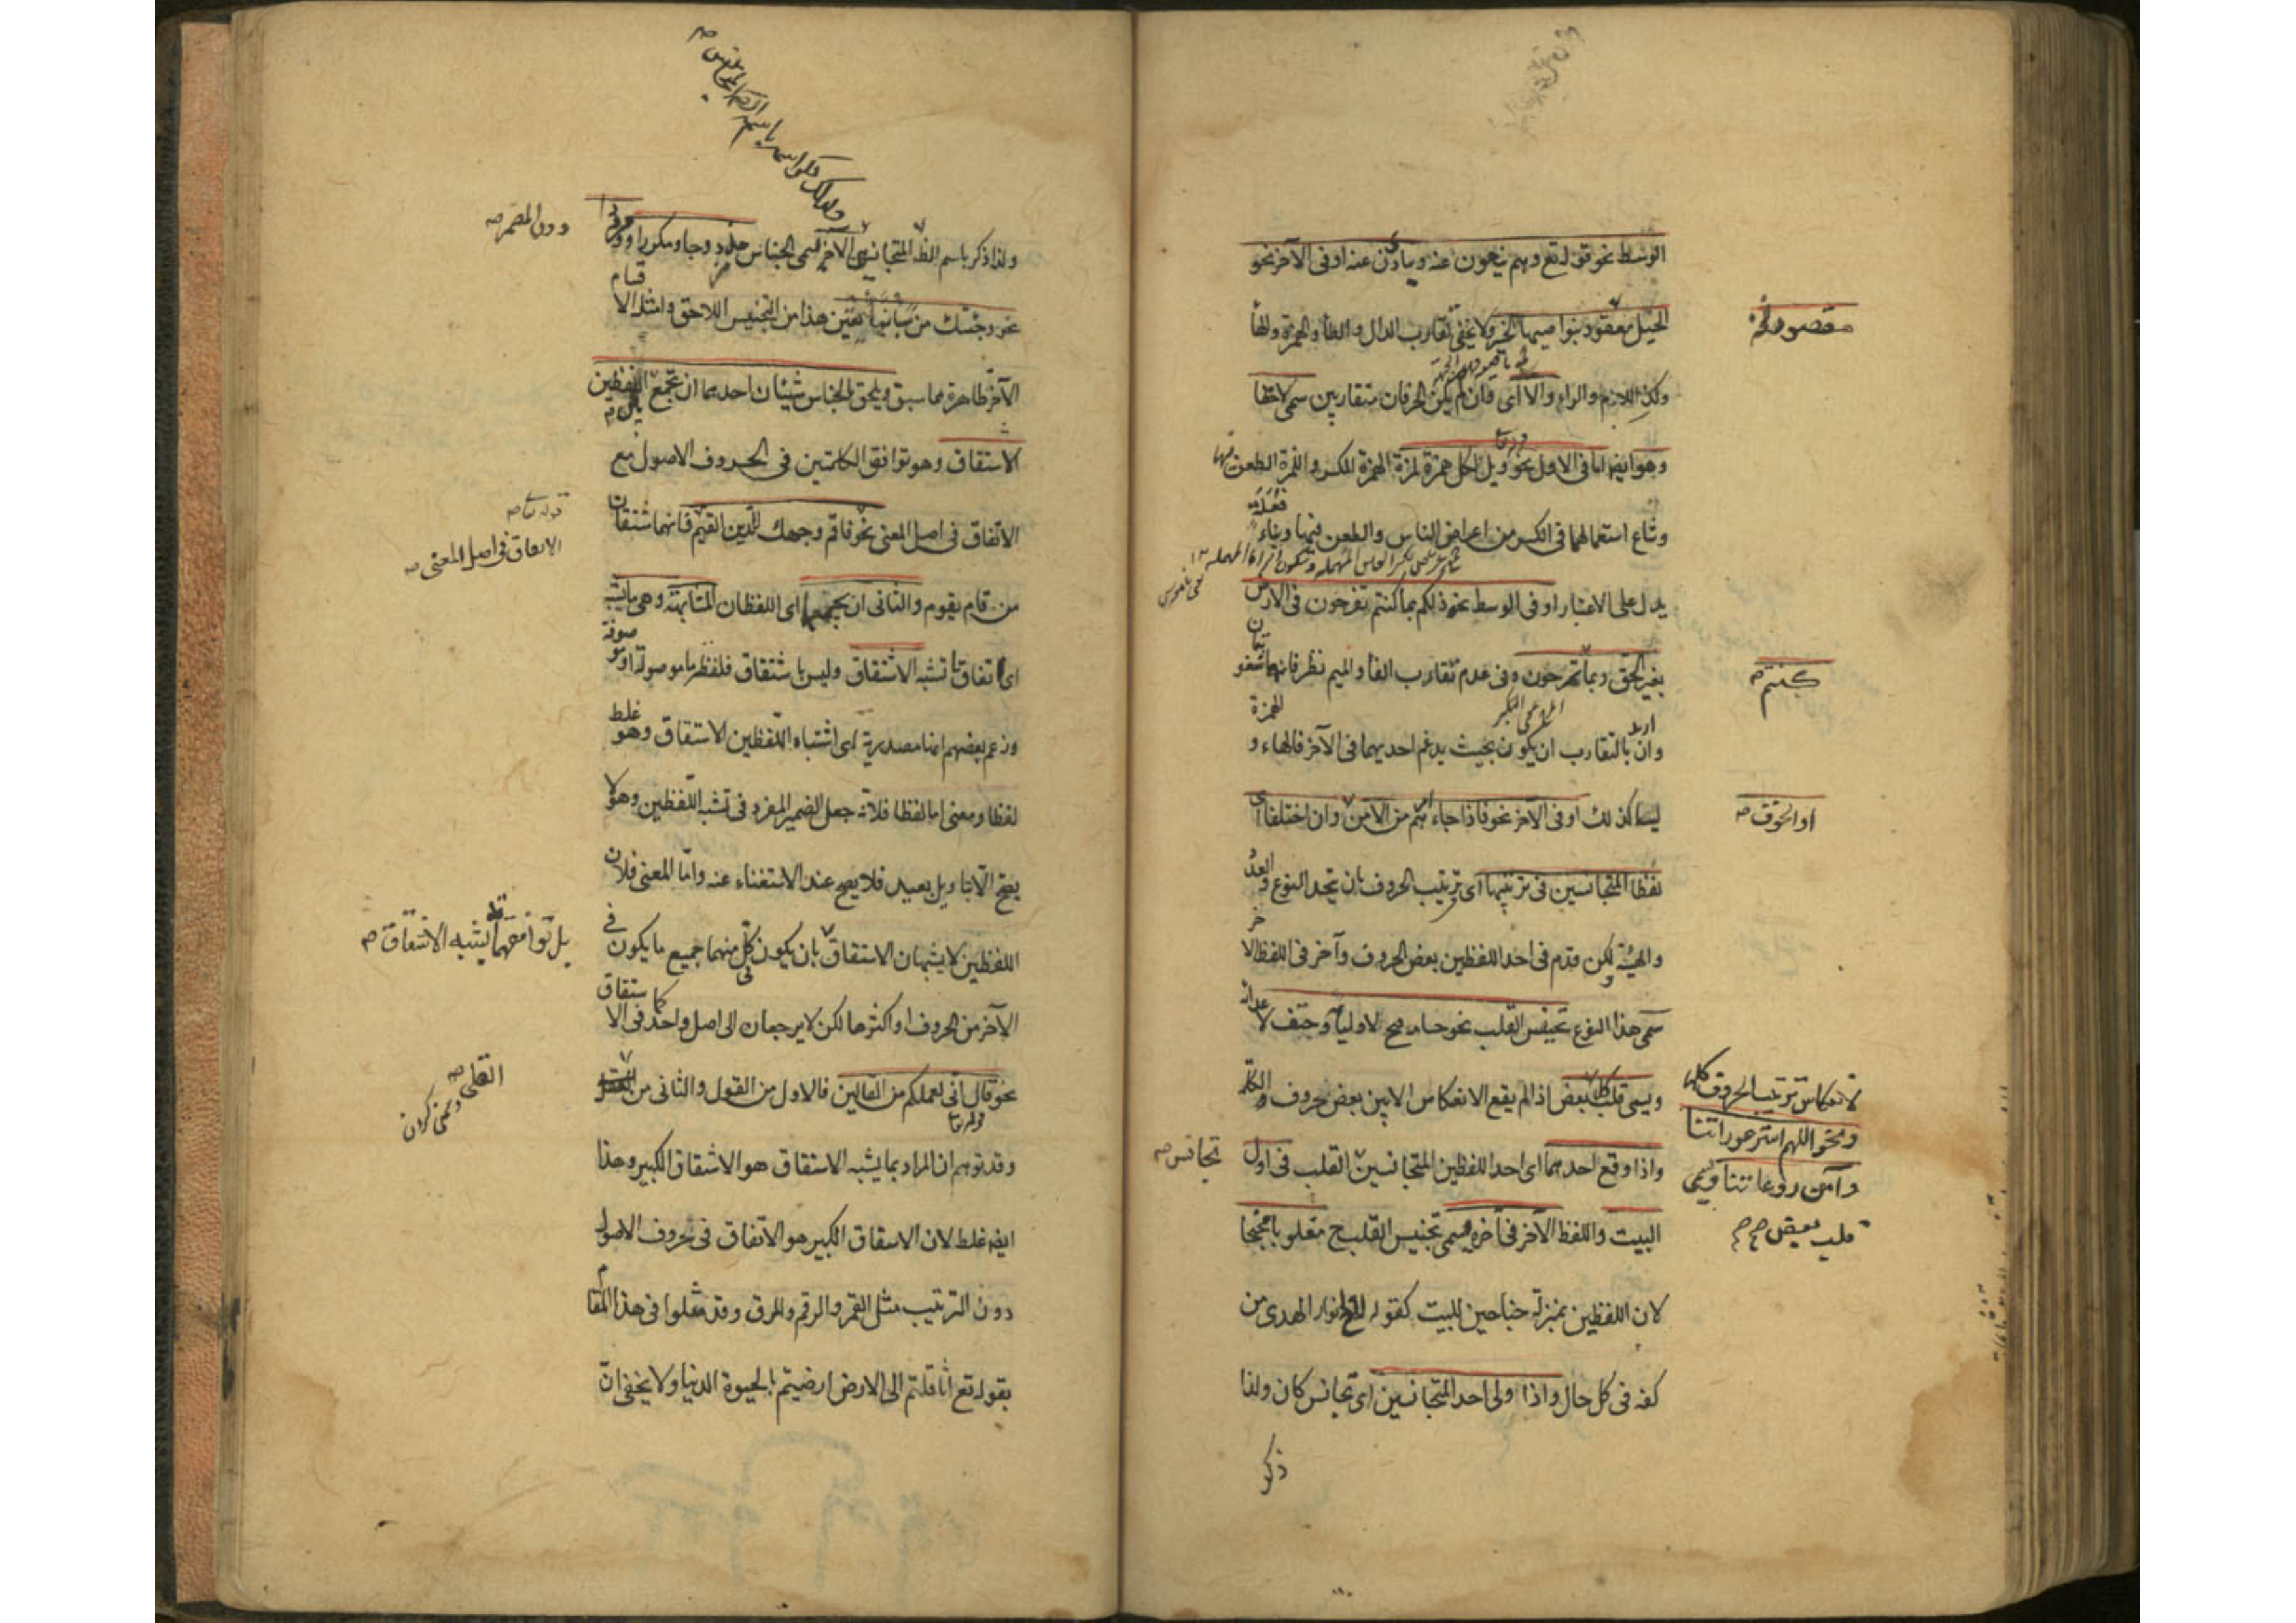 الوسط نحو قوله تع وهم ينهون عنه ويناؤن عنه او فى الآخر نحو
الخيل معقود بنواصيها الخير ولا يخفى تقارب الدال والطاء والهمزة والهاء
وكذا اللام والراء والا اى وان لم يكن الحرفان متقاربين سمى لاحقا
وهو ايضا اما فى الاول نحو ويل لكل همزة لمزة الهمزة الكسر واللمزة الطعن
وشاع استعمالهما فى الكسر من اعراض الناس والطعن فيها وبناء فعلة
يدل على الاعتبار او فى الوسط نحو ذلكم بما كنتم تفرحون فى الارض
بغير الحق وبما تمرحون وفى عدم تقارب الفاء والميم نظر فانهما شفويتان
وان اريد بالتقارب ان يكون بحيث يدغم احديهما فى الآخر فالهاء والهمزة
ليسا كذلك او فى الآخر نحو فاذا جاءهم امر من الامن وان اختلفا اى
لفظا المتجانسين فى ترتيبها اى ترتيب الحروف بان يتحد النوع والعدد
والهيئة لكن قدم فى احد اللفظين بعض الحروف وآخر فى اللفظ الآخر
سمى هذا النوع تجنيس القلب نحو حسامه فتح لاوليائه وحتف لاعدائه
ويسمى قلب كل بعض اذا لم يقع الانعكاس الا بين بعض حروف الكلمة
واذا وقع احدهما اى احد اللفظين المتجانسين القلب فى اول
البيت واللفظ الآخر فى آخره يسمى تجنيس القلب ح مقلوبا مجنحا
لان اللفظين بمنزلة جناحين للبيت كقوله لاح انوار الهدى من
كفه فى كل حال واذا ولى احد المتجانسين اى تجانس كان ولذا
ذكر
مقصور فى
كنتم صح
او الحرف صح
لانعكاس ترتيب الحروف كلها
ونحو اللهم استر عوراتنا
وآمن روعاتنا ويسمى
قلب بعض صح صح
تجانس صح
ولذا ذكر باسم الظ المتجانسين الآخر سمى الجناس مزدوجا ومكررا ومرددا
نحو وجئتك من سبأ بنبأ يقين هذا من التجنيس اللاحق وامثلة الاقسام
الآخر ظاهرة مما سبق ويلحق بالجناس شيئان احدهما ان يجمع اللفظين
الاشتقاق وهو توافق الكلمتين فى الحروف الاصول مع
الاتفاق فى اصل المعنى نحو فاقم وجهك للدين القيم فانهما مشتقان
من قام يقوم والثانى ان يجمعهما اى اللفظان المشابهة وهى ما يشبه
اى اتفاق تشبه الاشتقاق وليس باشتقاق فلفظ ما موصولة او موصوفة
وزعم بعضهم انها مصدرية اى اشتباه اللفظين الاشتقاق وهو غلط
لفظا ومعنى اما لفظا فلانه جعل الضمير المفرد فى تشبه اللفظين وهو لا
يصح الا بتاويل بعيد فلا يصح عند الاستغناء عنه واما المعنى فلان
اللفظين لا يشبهان الاشتقاق بان يكون فى كل منهما جميع ما يكون فى
الآخر من الحروف او اكثرها لكن لا يرجعان الى اصل واحد كما فى الاشتقاق
نحو قال انى لعملكم من القالين فالاول من القول والثانى من
وقد توهم ان المراد بما يشبه الاشتقاق هو الاشتقاق الكبير وهذا
ايضا غلط لان الاشتقاق الكبير هو الاتفاق فى حروف الاصول
دون الترتيب مثل القمر والرقم والمرق وقد مثلوا فى هذا المقام
بقوله تع اثاقلتم الى الارض ارضيتم بالحيوة الدنيا ولا يخفى ان
دون المضمر صح
قوله تعا صح
الاتفاق فى اصل المعنى صح
بل توافقهما قد يشبه الاشتقاق صح
القلى صح